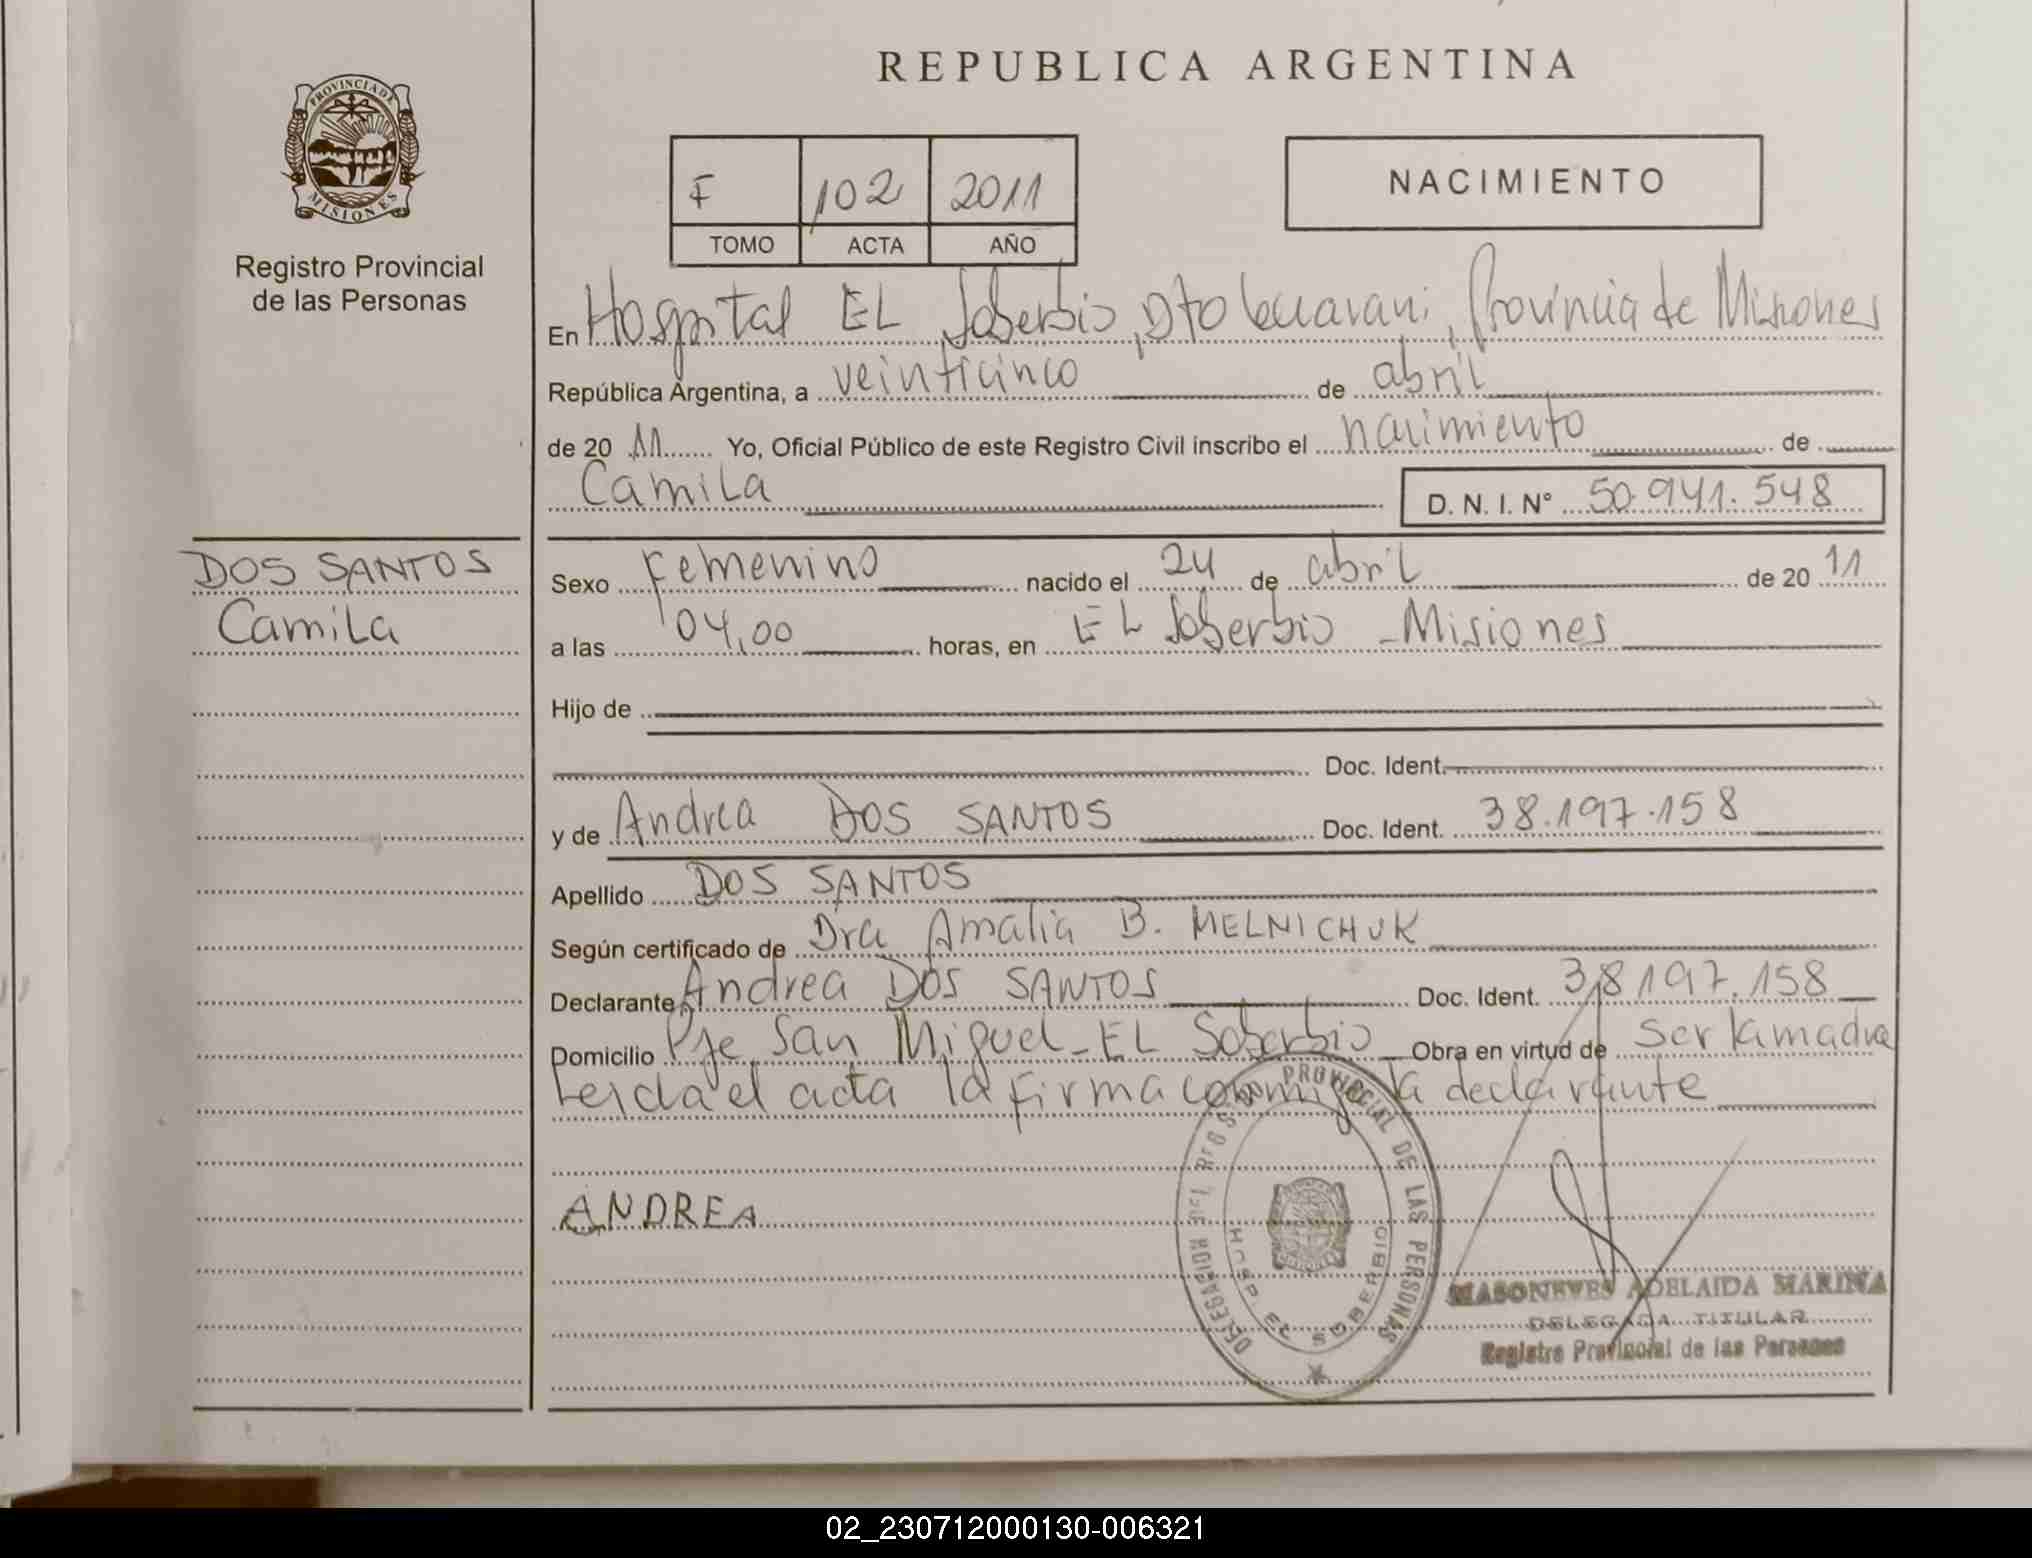 REPUBLICA ARGENTINA
PROVINCIA DE
MISIONES
Registro Provincial
de las Personas
F 102 2011
TOMO ACTA AÑO
NACIMIENTO
En Hospital EL Soberbio, Dto Guarani, Provincia de Misiones
República Argentina, a veinticinco de abril
de 20 11 Yo, Oficial Público de este Registro Civil inscribo el nacimiento de
Camila D. N. I. N° 50.941.548
DOS SANTOS
Camila
Sexo Femenino nacido el 24 de abril de 20 11
a las 04,00 horas, en EL Soberbio - Misiones
Hijo de
Doc. Ident.
y de Andrea DOS SANTOS Doc. Ident. 38.197.158
Apellido DOS SANTOS
Según certificado de Dra Amalia B. MELNICHUK
Declarante Andrea DOS SANTOS Doc. Ident. 38197.158
Domicilio Pje San Miguel - EL Soberbio Obra en virtud de ser la madre
Leida el acta la firma conmigo la declarante
ANDREA
DELEGACION DEL REGISTRO PROVINCIAL DE LAS PERSONAS
HOSP. EL SOBERBIO
MASONEVES ADELAIDA MARINA
DELEGADA TITULAR
Registro Provincial de las Personas
02_230712000130-006321